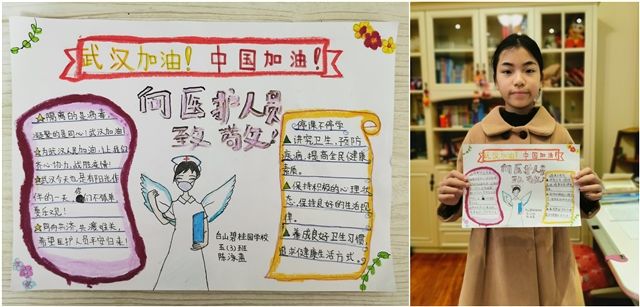 武汉加油！中国加油！
向医护人员
致敬！
隔离的是病毒，
凝聚的是同心！武汉加油！
为武汉人民加油！让我们
齐心协力，战胜疫情！
武汉今天也是有阳光作
伴的一天，你们不惧累，
希望医护人员平安归来！
停课不停学
讲究卫生，预防
疾病，提高全民健康
素质。
保持积极的心理状
态，保持良好的生活规
律。
养成良好卫生习惯
追求健康生活方式。
台山碧桂园学校
五(3)班
武汉加油！中国加油！
向医护人员
致敬！